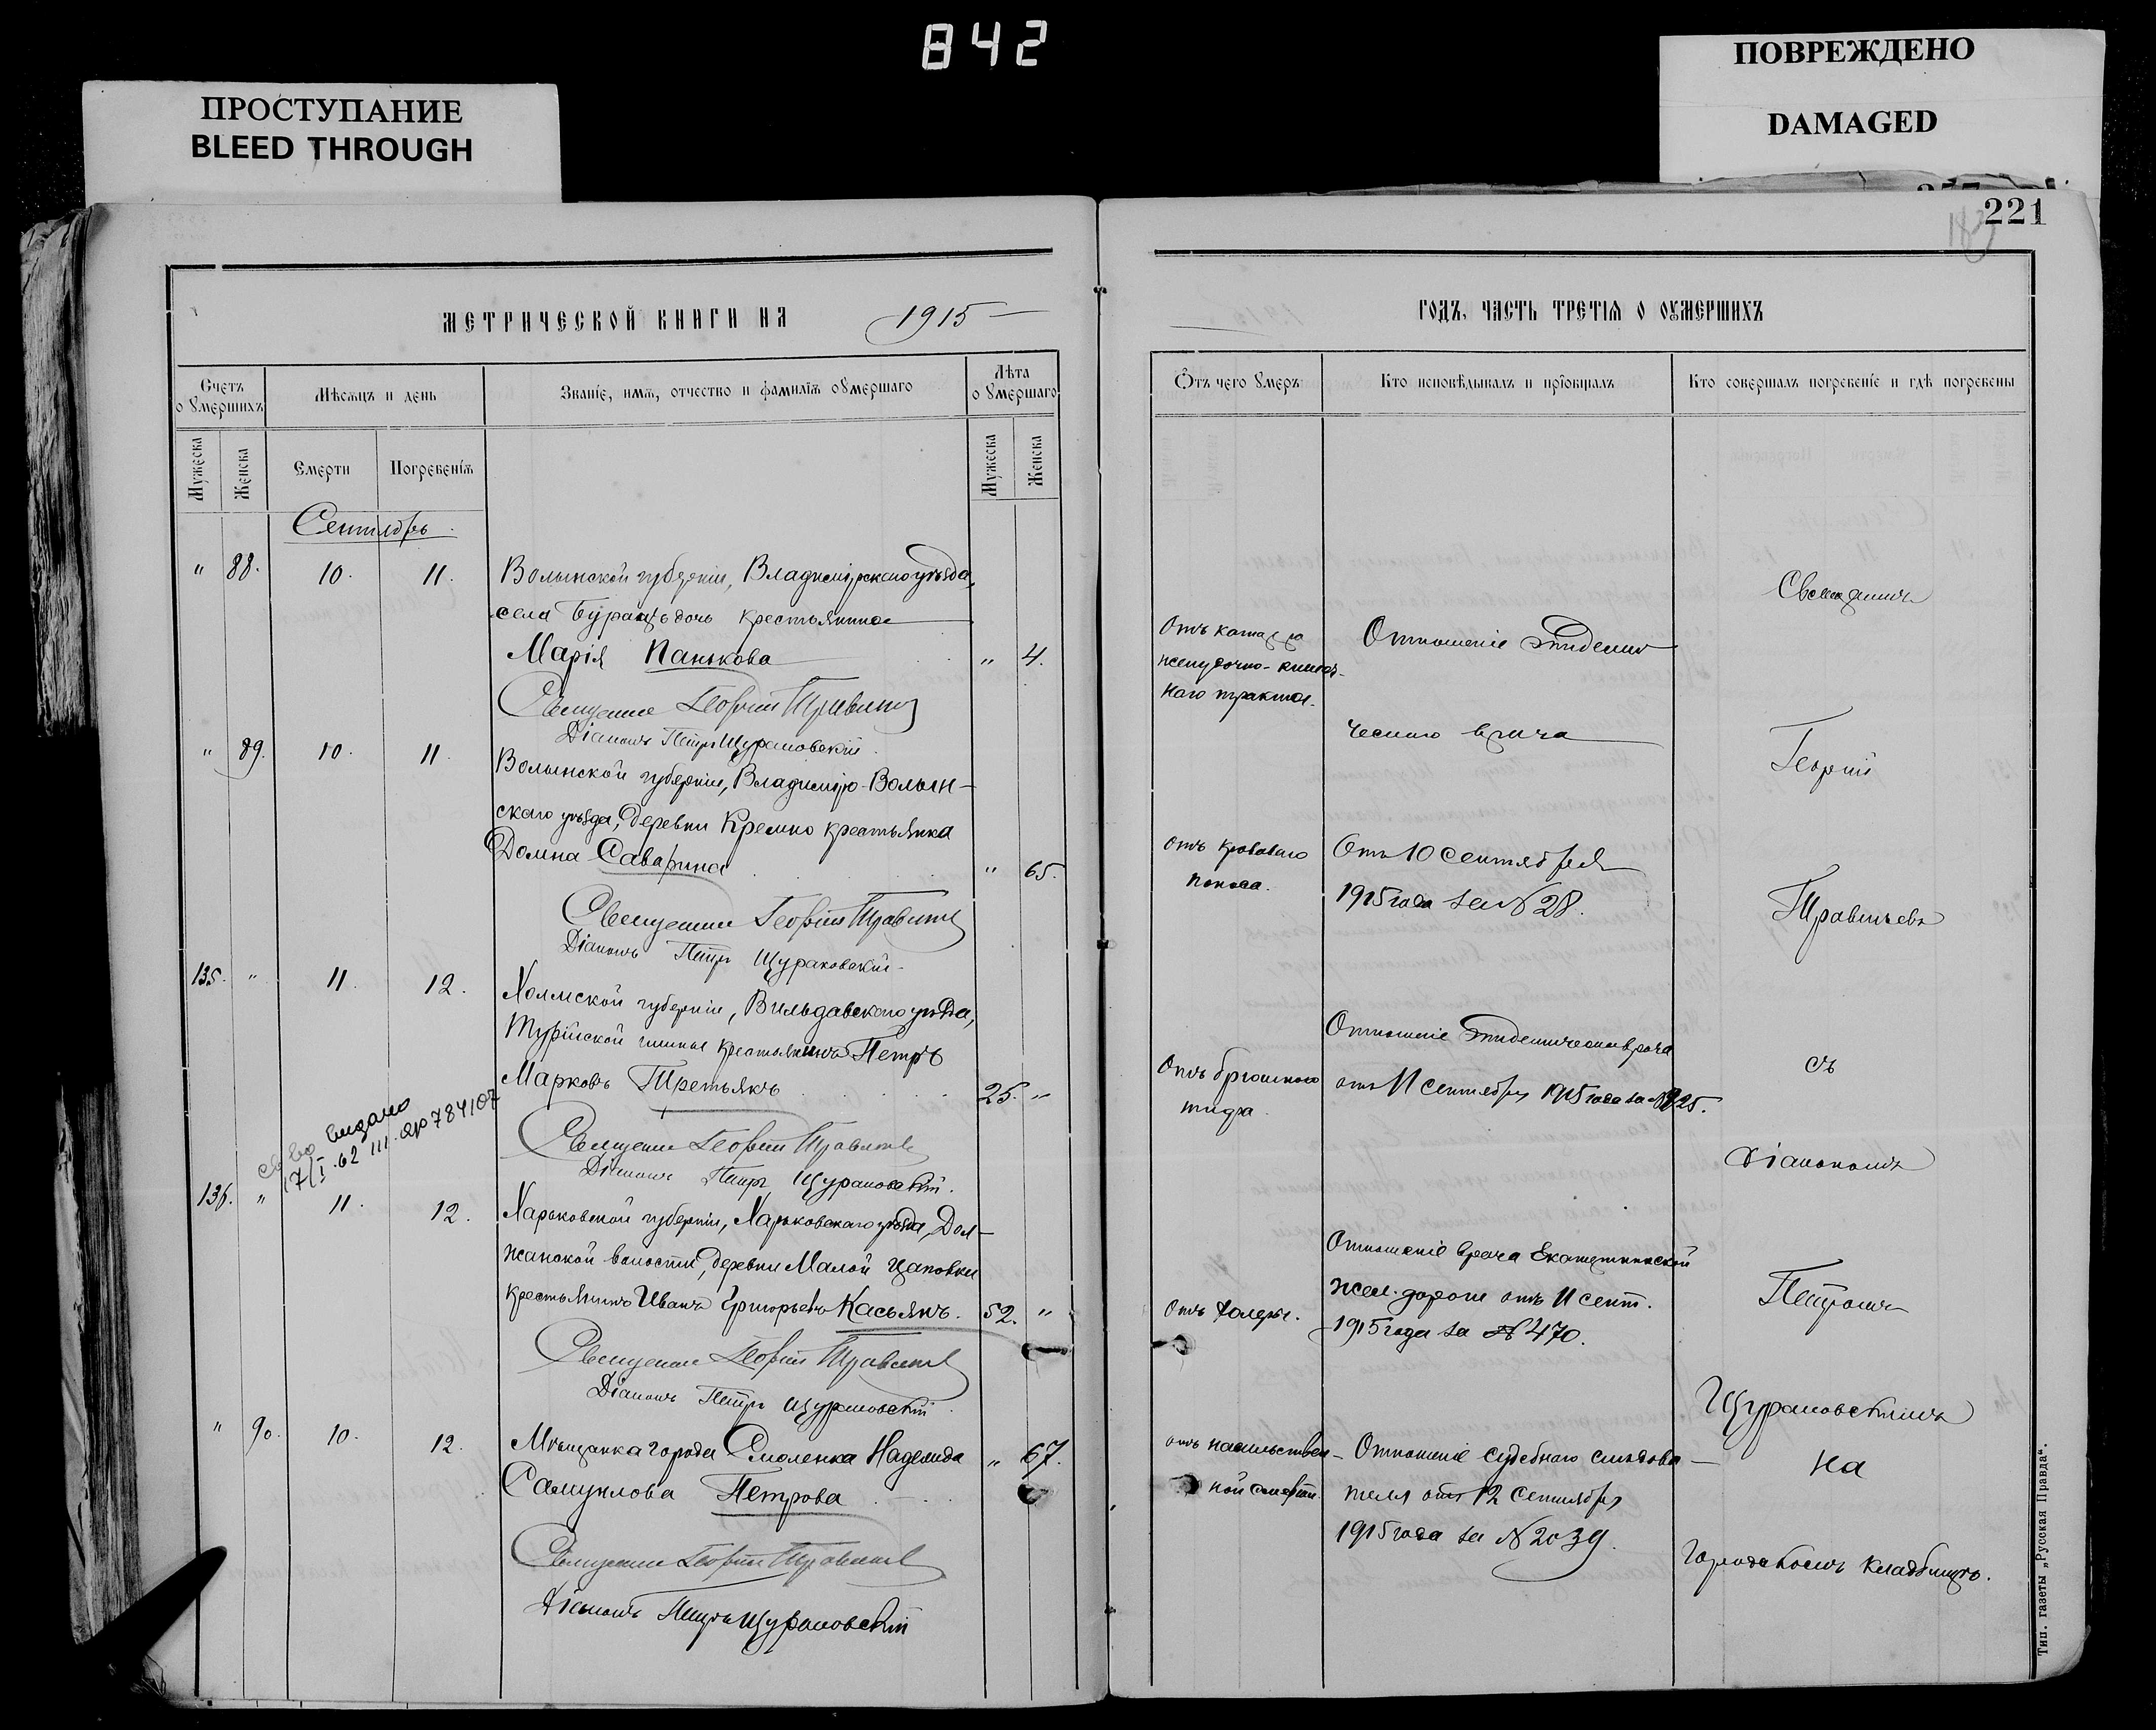 842
ПРОСТУПАНИЕ
BLEED THROUGH
ПОВРЕЖДЕНО
DAMAGED
221
МЕТРИЧЕСКОЙ КНИГИ НА 1915
Счетъ о умершихъ
Мѣсяцъ и день
Званіе, имя, отчество и фамилія умершаго
Лѣта умершаго
Мужеска
Женска
Смерти
Погребенія
Мужеска
Женска
Сентябрь.
" 88. 10. 11. Волынской губерніи, Владимірскаго уѣзда,
села дочь крестьянина
Марія Панькова " 4.
Священникъ Георгій Правитъ
Діаконъ Петръ Щурановскій.
" 89. 10. 11. Волынской губерніи, Владиміро-Волын-
скаго уѣзда, деревни Кремно крестьянка
Домна Саварина " 65.
Священникъ Георгій
Діаконъ Петръ Щурановскій.
135. " 11. 12. Холмской губерніи, уѣзда,
Турійской гмины крестьянинъ Петръ
Марковъ Третьякъ 25. "
Священникъ Георгій
Діаконъ Петръ Щурановскій.
выдано
17/I.62
136. " 11. 12. Харьковской губерніи, Харьковскаго уѣзда, Дол-
жанской волости, деревни Малой Цаповки
крестьянинъ Иванъ Григорьевъ Касьянъ. 52. "
Священникъ Георгій
Діаконъ Петръ Щурановскій.
" 90. 10. 12. Мѣщанка города Смоленка Надежда " 67.
Самуилова Петрова
Священникъ Георгій
Діаконъ Петръ Щурановскій
ГОДЪ, ЧАСТЬ ТРЕТІЯ О ОУМЕРШИХЪ
Отъ чего умеръ
Кто исповѣдывалъ и пріобщалъ
Кто совершалъ погребеніе и гдѣ погребены
Отъ катарра
желудочно-кишеч-
наго тракта.
Отношеніе Эпидеми-
ческаго врача
Отъ кроваваго
поноса.
Отъ 10 Сентября
1915 года за № 28.
Отъ брюшного
тифа.
Отношеніе Эпидемическаго врача
отъ 11 Сентября 1915 года за №
Отъ холеры.
Отношеніе врача Екатерининской
жел. дороги отъ 11 сент.
1915 года за № 470.
отъ насильствен-
ной смерти.
Отношеніе Судебнаго слѣдова-
теля отъ 12 Сентября
1915 года за № 2039.
Священникъ
Георгій
съ
Діакономъ
Петромъ
Щурановскимъ
на
Городскомъ кладбищѣ.
Тип. газеты „Русская Правда“.